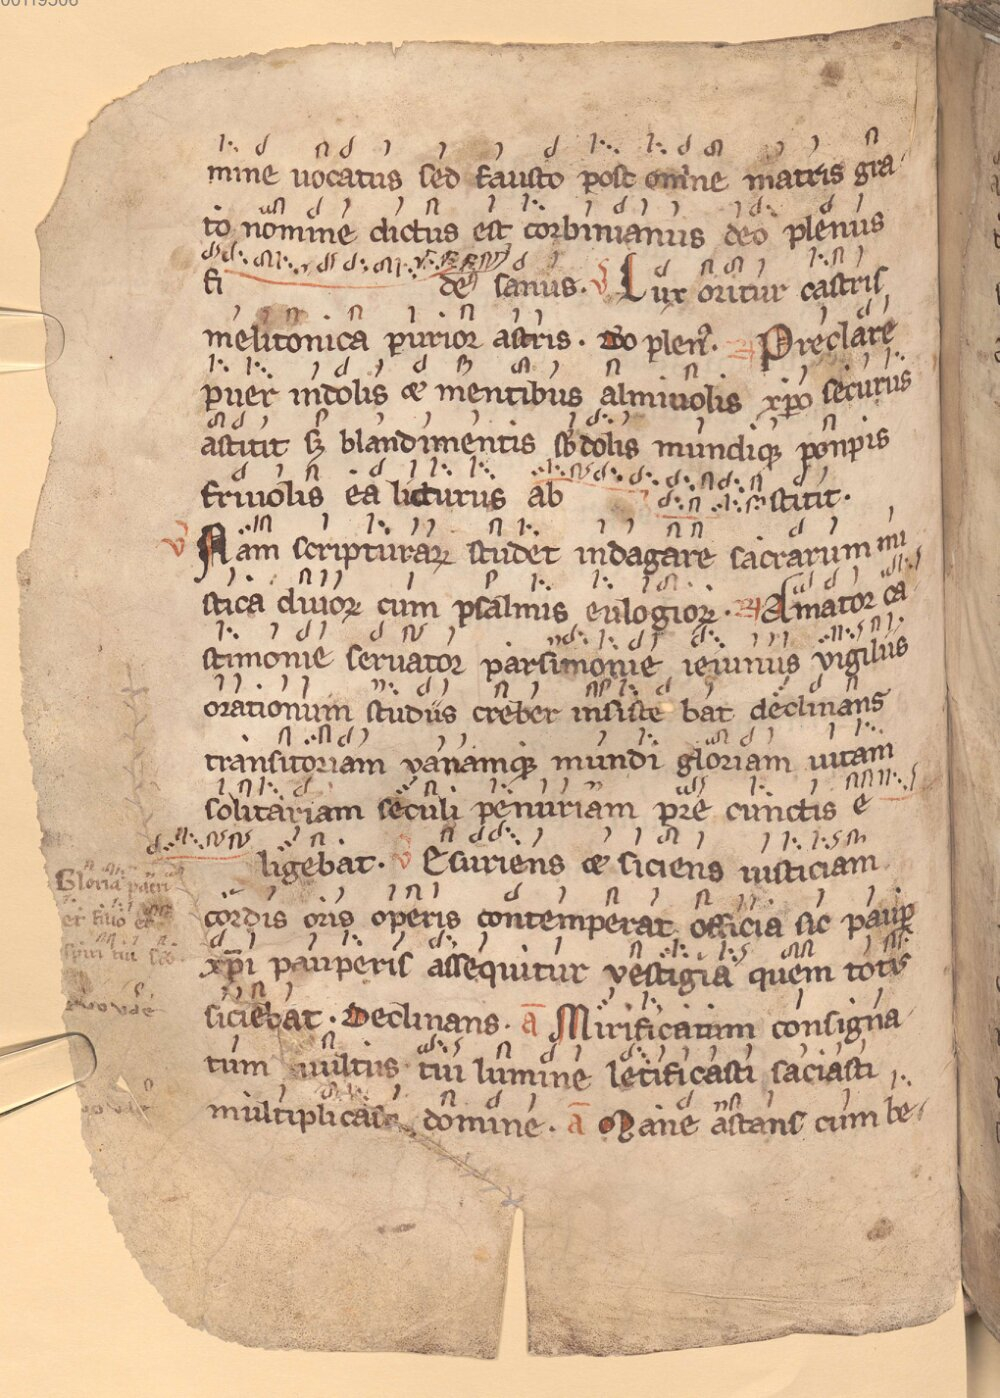 00119506
mine uocatus sed fausto post omine matris gra
to nomine dictus est corbinianus deo plenus
fi de sanus. V Lux oritur castris
melitonica purior astris. Do plen9. R Preclare
puer indolis & mentibus almiuolis xp̄o securus
astitit sꝫ blandimentis s; dolis mundiqꝫ ponpis
friuolis ea liturus ab stitit.
V Nam scripturaꝝ studet indagare sacrarum mi
stica diuioꝝ cum psalmis eulogioꝝ. R Amator ca
stimonie seruator parsimonie ieiunus vigiliis
orationum studiis creber insiste bat declinans
transitoriam vanamqꝫ mundi gloriam uitam
solitariam seculi penuriam pre cunctis e
ligebat. V Esuriens & siciens iusticiam
cordis oris operis contemperat officia sic paup̄
xp̄i pauperis assequitur vestigia quem totis
siciebat. Declinans. ā Mirificatum consigna
tum uultus tui lumine letificasti saciasti
multiplicas domine. ā Mane astans cum be
Gloria patri
et filio et
spiri tui sco